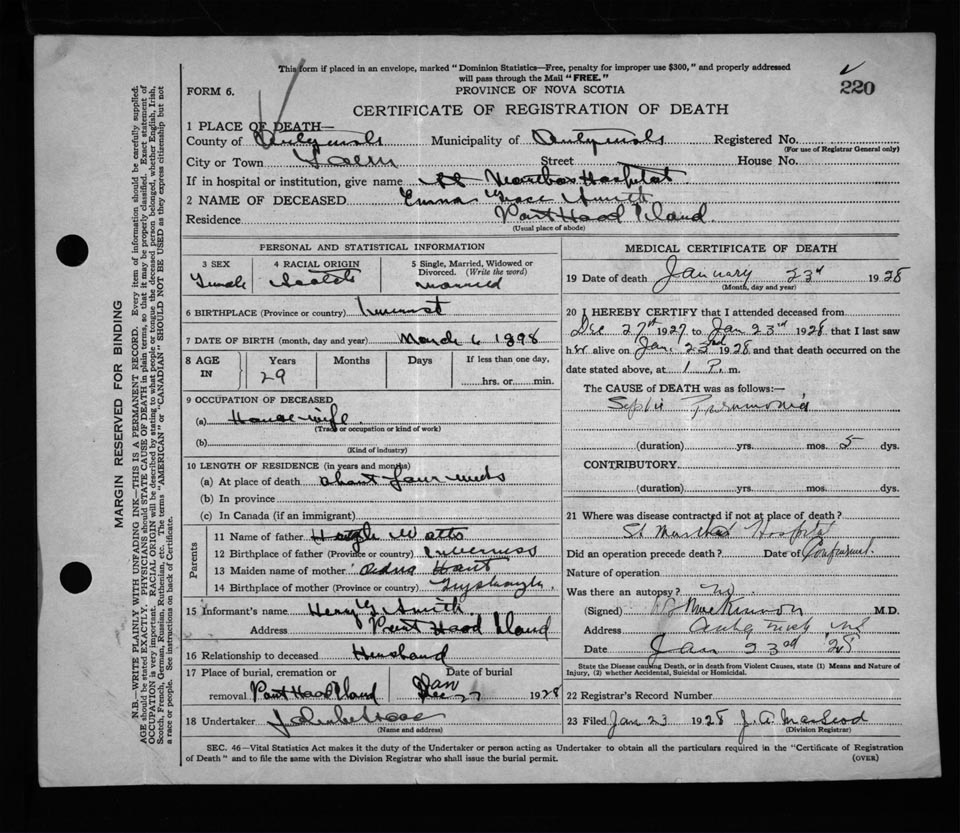 This form if placed in an envelope, marked "Dominion Statistics—Free, penalty for improper use $300," and properly addressed
will pass through the Mail "FREE."
220
FORM 6.
PROVINCE OF NOVA SCOTIA
CERTIFICATE OF REGISTRATION OF DEATH
1 PLACE OF DEATH—
County of Antigonish Municipality of Antigonish Registered No.
(For use of Registrar General only)
City or Town Town Street House No.
If in hospital or institution, give name St Marthas Hospital
2 NAME OF DECEASED Emma Smith
Residence Port Hood Island
(Usual place of abode)
PERSONAL AND STATISTICAL INFORMATION
3 SEX 4 RACIAL ORIGIN 5 Single, Married, Widowed or Divorced. (Write the word)
Female Scotch married
6 BIRTHPLACE (Province or country)
7 DATE OF BIRTH (month, day and year) March 6 1898
8 AGE IN Years Months Days If less than one day,
29 hrs. or min.
9 OCCUPATION OF DECEASED
(a) House-wife
(Trade or occupation or kind of work)
(b)
(Kind of industry)
10 LENGTH OF RESIDENCE (in years and months)
(a) At place of death about four weeks
(b) In province
(c) In Canada (if an immigrant)
Parents
11 Name of father Hugh Watts
12 Birthplace of father (Province or country) Inverness
13 Maiden name of mother
14 Birthplace of mother (Province or country)
15 Informant's name Henry G Smith
Address Port Hood Island
16 Relationship to deceased Husband
17 Place of burial, cremation or removal Port Hood Island
Date of burial Jan 27 1928
18 Undertaker
(Name and address)
MEDICAL CERTIFICATE OF DEATH
19 Date of death January 23rd 1928
(Month, day and year)
20 I HEREBY CERTIFY that I attended deceased from
Dec 27th 1927 to Jan 23rd 1928 that I last saw
her alive on Jan. 23rd 1928 and that death occurred on the
date stated above, at 1 P. m.
The CAUSE of DEATH was as follows:—
Septic Pneumonia
(duration) yrs. mos. 5 dys.
CONTRIBUTORY.
(duration) yrs. mos. dys.
21 Where was disease contracted if not at place of death?
St Marthas Hospital
Did an operation precede death? Date of
Nature of operation
Was there an autopsy? No.
(Signed) MacKinnon M.D.
Address Antigonish NS
Date Jan 23rd '28
State the Disease causing Death, or in death from Violent Causes, state (1) Means and Nature of
Injury, (2) whether Accidental, Suicidal or Homicidal.
22 Registrar's Record Number
23 Filed Jan 23 1928 J. A. MacLeod
(Division Registrar)
SEC. 46—Vital Statistics Act makes it the duty of the Undertaker or person acting as Undertaker to obtain all the particulars required in the "Certificate of Registration
of Death" and to file the same with the Division Registrar who shall issue the burial permit.
(OVER)
MARGIN RESERVED FOR BINDING
N.B.—WRITE PLAINLY WITH UNFADING INK—THIS IS A PERMANENT RECORD. Every item of information should be carefully supplied.
AGE should be stated EXACTLY. PHYSICIANS should STATE CAUSE OF DEATH in plain terms, so that it may be properly classified. Exact statement of
OCCUPATION is very important. RACIAL ORIGIN will be described by stating to what people or tongue the deceased person belonged, whether English, Irish,
Scotch, French, German, Russian, Ruthenian, etc. The terms "AMERICAN" or "CANADIAN" SHOULD NOT BE USED as they express citizenship but not
a race or people. See instructions on back of Certificate.